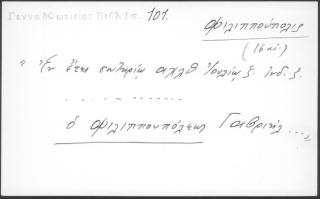 Γενναδιωτικές Βιβλ. σ. 101.
Φιλιππούπολις
(16 αι.)
"Ἐν ἔτει σωτηρίῳ αχλθ Ἰουλίῳ ξ. ἰνδ. ξ.
. . . . . . . . . . . . .
ὁ Φιλιππουπόλεως Γαβριήλ ..."